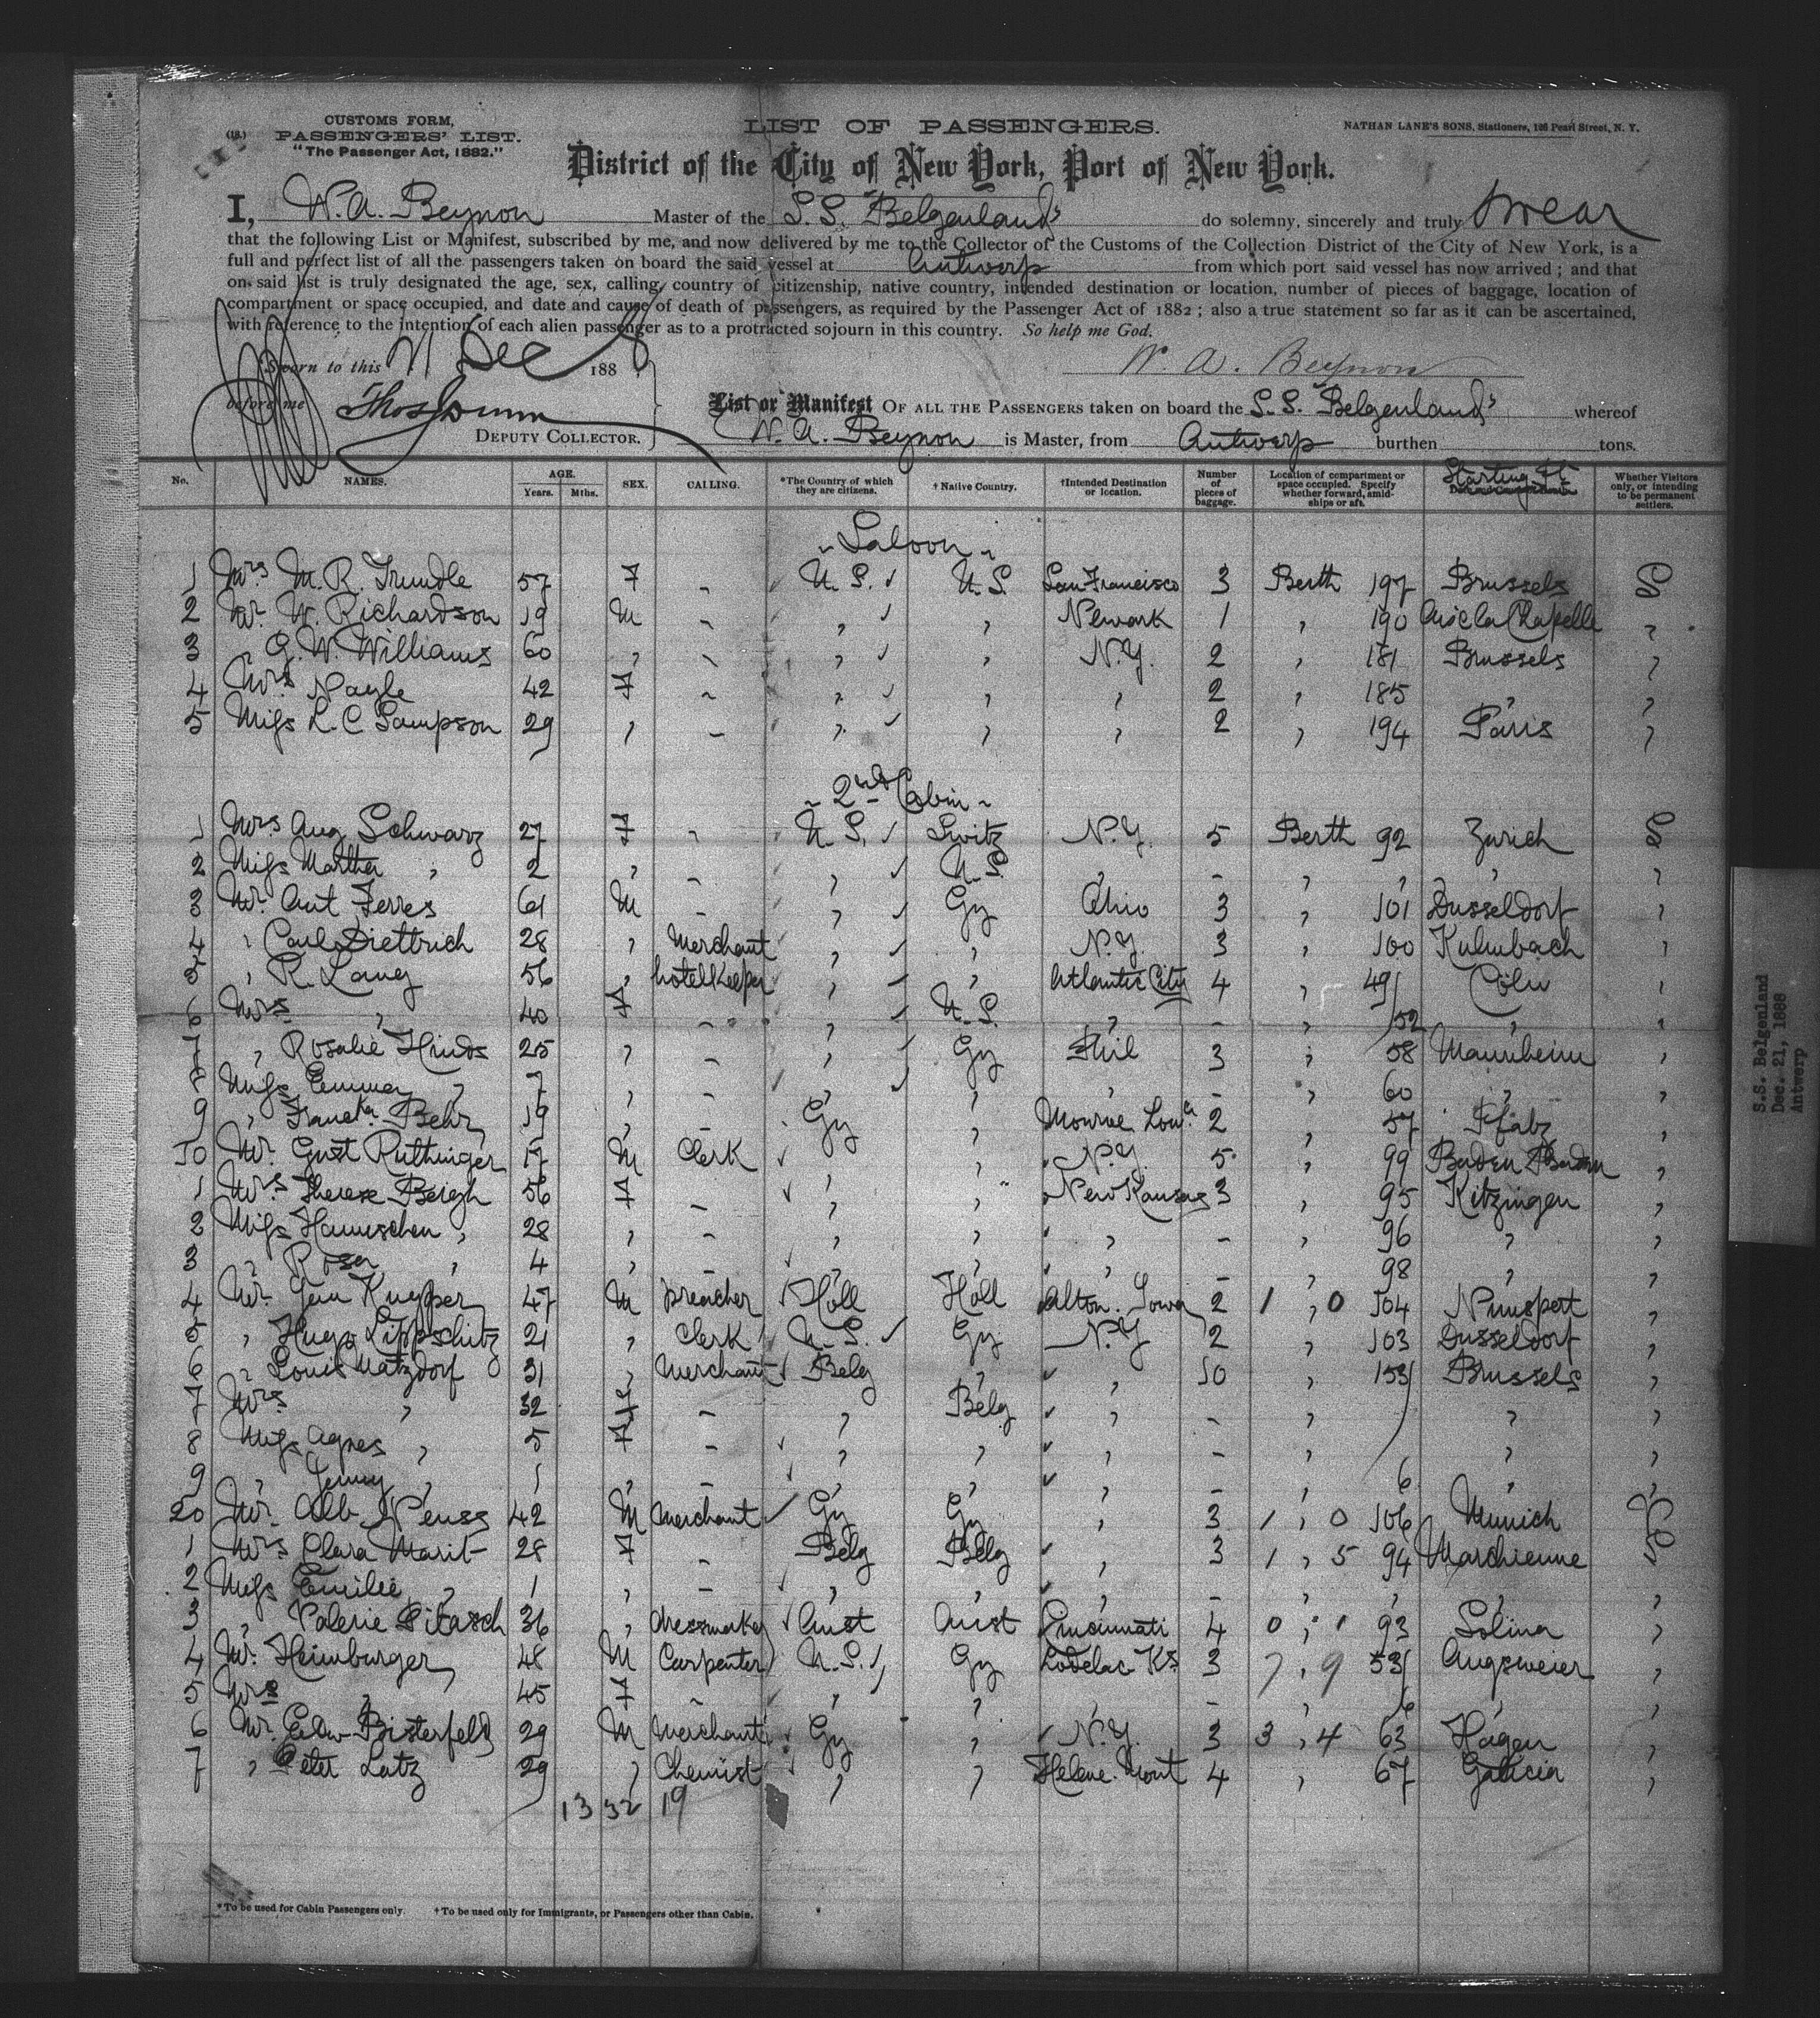 (18.)
CUSTOMS FORM,
PASSENGERS' LIST.
"The Passenger Act, 1882."
LIST OF PASSENGERS.
NATHAN LANE'S SONS, Stationers, 126 Pearl Street, N. Y.
District of the City of New York, Port of New York.
I, W. A. Beynon Master of the S.S. "Belgenland" do solemny, sincerely and truly swear
that the following List or Manifest, subscribed by me, and now delivered by me to the Collector of the Customs of the Collection District of the City of New York, is a
full and perfect list of all the passengers taken on board the said vessel at Antwerp from which port said vessel has now arrived ; and that
on said list is truly designated the age, sex, calling, country of citizenship, native country, intended destination or location, number of pieces of baggage, location of
compartment or space occupied, and date and cause of death of passengers, as required by the Passenger Act of 1882 ; also a true statement so far as it can be ascertained,
with reference to the intention of each alien passenger as to a protracted sojourn in this country. So help me God.
Sworn to this 21 Dec 1888
W. A. Beynon
before me Thos Dunn
DEPUTY COLLECTOR.
List or Manifest OF ALL THE PASSENGERS taken on board the S.S. "Belgenland" whereof
W. A. Beynon is Master, from Antwerp burthen tons.
No. NAMES. AGE. Years. Mths. SEX. CALLING. *The Country of which they are citizens. †Native Country. †Intended Destination or location. Number of pieces of baggage. Location of compartment or space occupied. Specify whether forward, amidships or aft. Starting Pt Whether Visitors only, or intending to be permanent settlers.
Saloon
1 Mrs M. R. Trundle 57 F - U.S. U.S. San Francisco 3 Berth 197 Brussels S
2 Mr. W. Richardson 19 M - " " Newark 1 " 190 Aix la Chapelle "
3 " G. W. Williams 60 " - " " N.Y. 2 " 181 Brussels "
4 Mrs Nagle 42 F - " " " 2 " 185 " "
5 Miss L. C. Sampson 29 " - " " " 2 " 194 Paris "
2nd Cabin
1 Mrs Aug Schwarz 27 F - U.S. Switz N.Y. 5 Berth 92 Zurich S
2 Miss Martha " 2 " - " U.S. " - " " " "
3 Mr. Ant Ferres 61 M - " Gy Ohio 3 " 101 Dusseldorf "
4 " Carl Diettrich 28 " Merchant " " N.Y. 3 " 100 Kulmbach "
5 " R. Lang 56 " hotelkeeper " " Atlantic City 4 " 49/ Cöln "
6 Mrs " 40 F - " U.S. " - " /52 " "
7 " Rosalie Hinds 25 " - " Gy Phil 3 " 58 Mannheim "
8 Miss Emma " 7 " - " " " - " 60 " "
9 " Franska Behr 19 " - Gy " Monroe Low.a 2 " 57 Pfalz "
10 Mr. Gust Ruthinger 17 M Clerk " " N.Y. 5 " 99 Baden Baden "
1 Mrs Therese Bergh 56 F - " " New Kansas 3 " 95 Kitzingen "
2 Miss Hannchen " 28 " - " " " - " 96 " "
3 " Rosa " 4 " - " " " - " 98 " "
4 Mr. Jan Kuepper 47 M preacher Holl Holl Alton. Iowa 2 1 " 0 104 Nunspett "
5 " Hugo Lippschitz 21 " Clerk U.S. Gy N.Y 2 " 103 Dusseldorf "
6 " Louis Matzdorf 31 " Merchant Belg " " 10 " 153/ Brussels "
7 Mrs " 32 F - " Belg " - " " "
8 Miss Agnes " 5 F - " " " - " " "
9 " Jenny " 1 " - " " " - " 6 " "
20 Mr. Alb. Neuss 42 M Merchant Gy Gy " 3 1 " 0 106 Munich
1 Mrs Clara Marit 28 F - Belg Belg " 3 1 " 5 94 Marchienne S
2 Miss Emilie " 1 " - " " " - " " " "
3 " Valerie Pitasch 36 " dressmaker Aust Aust Cincinnati 4 0 " 1 93 Solina "
4 Mr. Heimburger 48 M Carpenter U.S. Gy Lodelac Ks 3 7 " 9 53/ Augsweier "
5 Mrs " 45 F - " " - " 6 "
6 Mr. Edw Bisterfeld 29 M Merchant Gy " N.Y. 3 3 " 4 63 Hagen "
7 " Peter Latz 29 " Chemist " " Helena. Mont 4 " 67 Galicia "
13 32 19
*To be used for Cabin Passengers only. †To be used only for Immigrants, or Passengers other than Cabin.
S.S. Belgenland
Dec. 21, 1888
Antwerp